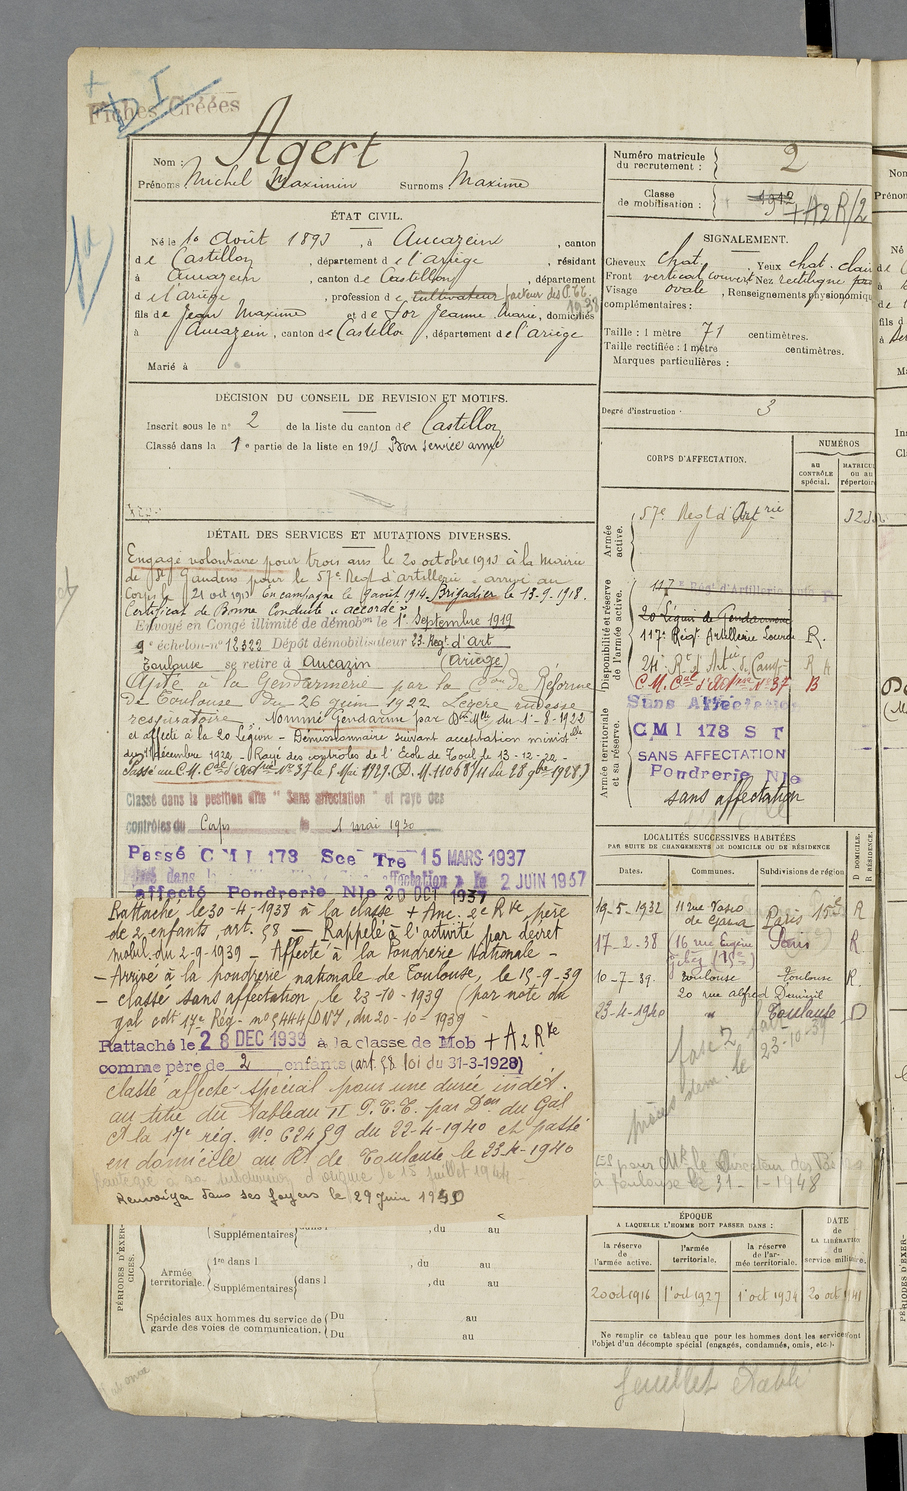 Fiches Créées
I
Agert
Nom :
Prénoms Michel Maximin Surnoms Maxime
Numéro matricule du recrutement : 2
Classe de mobilisation : 1912 + A 2 R/2
ÉTAT CIVIL.
Né le 1er Août 1893, à Aucazein, canton
de Castillon, département de l'ariège, résidant
à Aucazein, canton de Castillon, département
de l'ariège, profession de cultivateur facteur des P.T.T. 1938
fils de Jean Maxime et de For Jeanne Marie, domiciliés
à Aucazein, canton de Castillon, département de l'ariège
Marié à
SIGNALEMENT.
Cheveux chat. Yeux chat. clair
Front vertical couvert Nez rectiligne
Visage ovale, Renseignements physionomiqu
complémentaires :
Taille : 1 mètre 71 centimètres.
Taille rectifiée : 1 mètre centimètres.
Marques particulières :
DÉCISION DU CONSEIL DE REVISION ET MOTIFS.
Inscrit sous le n° 2 de la liste du canton de Castillon
Classé dans la 1e partie de la liste en 1913 Bon service armé
Degré d'instruction : 3
DÉTAIL DES SERVICES ET MUTATIONS DIVERSES.
Engagé volontaire pour trois ans le 20 octobre 1913 à la Mairie
de St Gaudens pour le 57e Regt d'artillerie - arrivé au
Corps le 21 oct 1913 en campagne le 9 août 1914. Brigadier le 13.9.1918.
Certificat de Bonne Conduite "accordé"
Envoyé en Congé illimité de démobon le 1er Septembre 1919
9e échelon-n° 12322 Dépôt démobilisateur 23. Regt d'Art
Toulouse se retire à Aucazin (Ariège)
Apte à la Gendarmerie par la Con de Réforme
de Toulouse du 26 juin 1922 Légère rudesse
respiratoire. Nommé Gendarme par Don Mlle du 1-8-1922
et affecté à la 20 Légion - Démissionnaire suivant acceptation ministlle
décembre 1922. Rayé des controles de l'Ecole de Toul le 13-12-22 -
Passé au C.M. Cal d'Artie N° 37 le 5 Mai 1929 (D.M. 11068/11 du 28 9bre 1928)
Classé dans la position dite "Sans affectation" et rayé des
contrôles du Corps le 1 mai 1930
Passé CMI 173 Sce Tre 15 MARS 1937
2 JUIN 1937
affecté Poudrerie Nle 20 OCT 1937
Rattaché le 30-4-1938 à la classe + Anc. 2e Rve père
de 2 enfants, art. 58 — Rappelé à l'activité par décret
mobil. du 2-9-1939 - Affecté à la Poudrerie Nationale -
- Arrivé à la poudrerie nationale de Toulouse, le 15-9-39
- classé sans affectation, le 23-10-1939 (par note du
gal cdt 17e Rég. n° 5444/DNJ, du 20-10-1939 -
Rattaché le 28 DEC 1939 à la classe de Mob + A 2 Rve
comme père de 2 enfants (art. 58 loi du 31-3-1928)
classé affecté spécial pour une durée indét.
au titre du Tableau II P.T.T. par Don du Gal
Ct la 17e rég. N° 62459 du 22-4-1940 et passé
en domicile au Rt de Toulouse le 23-4-1940
le 15 juillet 1944 -
Renvoyé dans ses foyers le 29 juin 1940
CORPS D'AFFECTATION.
NUMÉROS
au CONTRÔLE spécial.
MATRICUL ou au répertoire
Armée active.
57e Regt d'Artrie 323
Disponibilité et réserve de l'armée active.
117e Régt d'Artillerie
20 Légion de Gendarmerie
117e Régt Artillerie Lourde R.
24e Rt d'Artie de Camp R
C.M. Cal d'Artie N° 37 B
Armée territoriale et sa réserve.
Sans Affectation
CMI 173 ST
SANS AFFECTATION
Poudrerie Nle
sans affectation
LOCALITÉS SUCCESSIVES HABITÉES
PAR SUITE DE CHANGEMENTS DE DOMICILE OU DE RÉSIDENCE
Dates. Communes. Subdivisions de région D DOMICILE. R RÉSIDENCE.
19-5-1932 11 rue Vasco de Gama Paris 15e R
17-2-38 (16 rue Eugène Gibez (15e) Paris R.
10-7-39. Toulouse Toulouse R.
20 rue alfred Duméril
23-4-1940 " Toulouse D
23-10-39
Mr le Directeur des
à Toulouse le 31-1-1948
ÉPOQUE
A LAQUELLE L'HOMME DOIT PASSER DANS :
la réserve de l'armée active. l'armée territoriale. la réserve de l'armée territoriale. DATE de LA LIBÉRATION du service militaire.
20 oct 1916 1er oct 1927 1er oct 1934 20 oct 1941
Ne remplir ce tableau que pour les hommes dont les services font
l'objet d'un décompte spécial (engagés, condamnés, omis, etc.).
PÉRIODES D'EXERCICES.
Supplémentaires , du au
Armée territoriale. 1re dans l , du au
Supplémentaires dans l , du au
Spéciales aux hommes du service de garde des voies de communication. Du au
Du au
feuillet établi